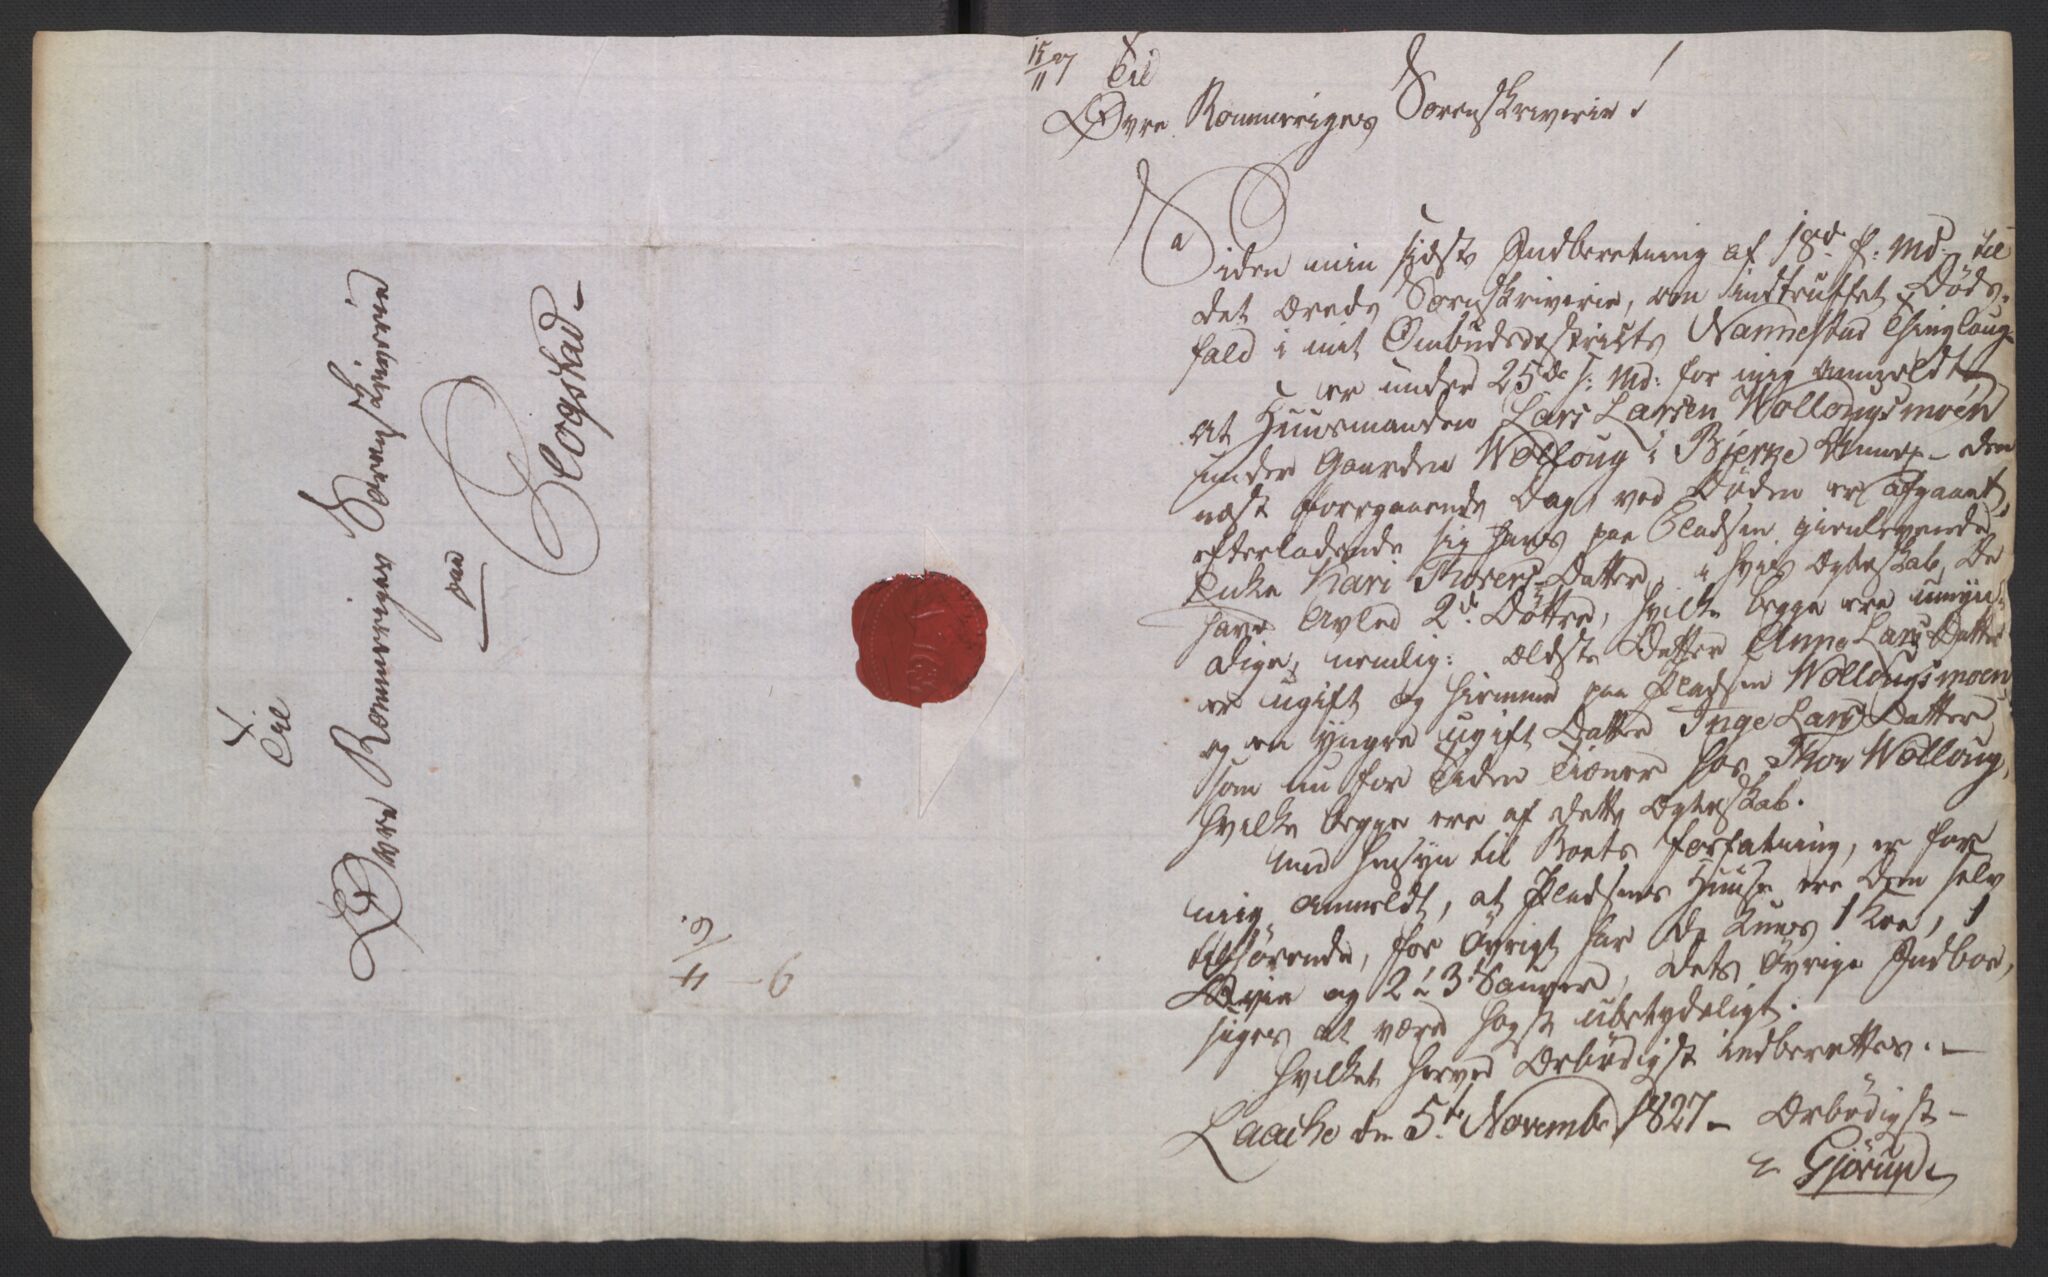 Til
Øvre Rommeriges Sorenskriverie
paa
Blogstad
6/11
9
15/11 27
Til
Øvre Rommeriges Sorenskriverie!
Siden min sidste Indberetning af 18de f: Md: til
det ærede Sorenskriverie, om indtruffet Døds-
fald i mit Ombudsdestrickts Nannestad Thinglaug-
er under 25de f: Md: for mig anmeldt,
at Huusmanden Lars Larsen Wollougsmoen
under Gaarden Wolloug i Bjerke Annex - den
næst foregaaende Dag, ved Døden er afgaaet,
efterladende sig hans paa Pladsen gienlevende
Enke Kari Thorers Datter, i hvis Ægteskab, De
have Avled 2de Døttre, hvilke begge ere umyn-
dige, nemlig: ældste Datter Anne Lars Datter
er ugift og hiemme paa Pladsen Wollougsmoen
og en yngre ugift Datter Inge Lars Datter
som nu for Tiden Tiener hos Thor Wolloug,
hvilke begge ere af dette Ægteskab.
Med Hensyn til Boets forfatning, er for
mig Anmeldt, at Pladsens Huuse ere dem selv
tilhørende, for Øvrigt har De kuns 1 Koe, 1
Qvie og 2 à 3 Sauer, dets Øvrige Indboe,
siges at være høgst ubetydeligt.
Hvilket herved Ærbødigst indberettes. -
Laache den 5te Novembr 1827 - Ærbødigst -
Gjørup